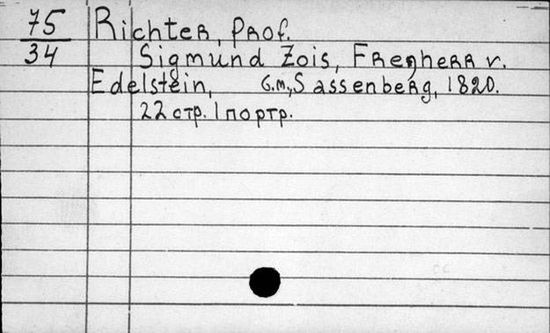 75
34
Richter, Prof.
Sigmund Zois, Freyherr v.
Edelstein, б.м., Sassenberg, 1820.
22 стр. 1 портр.